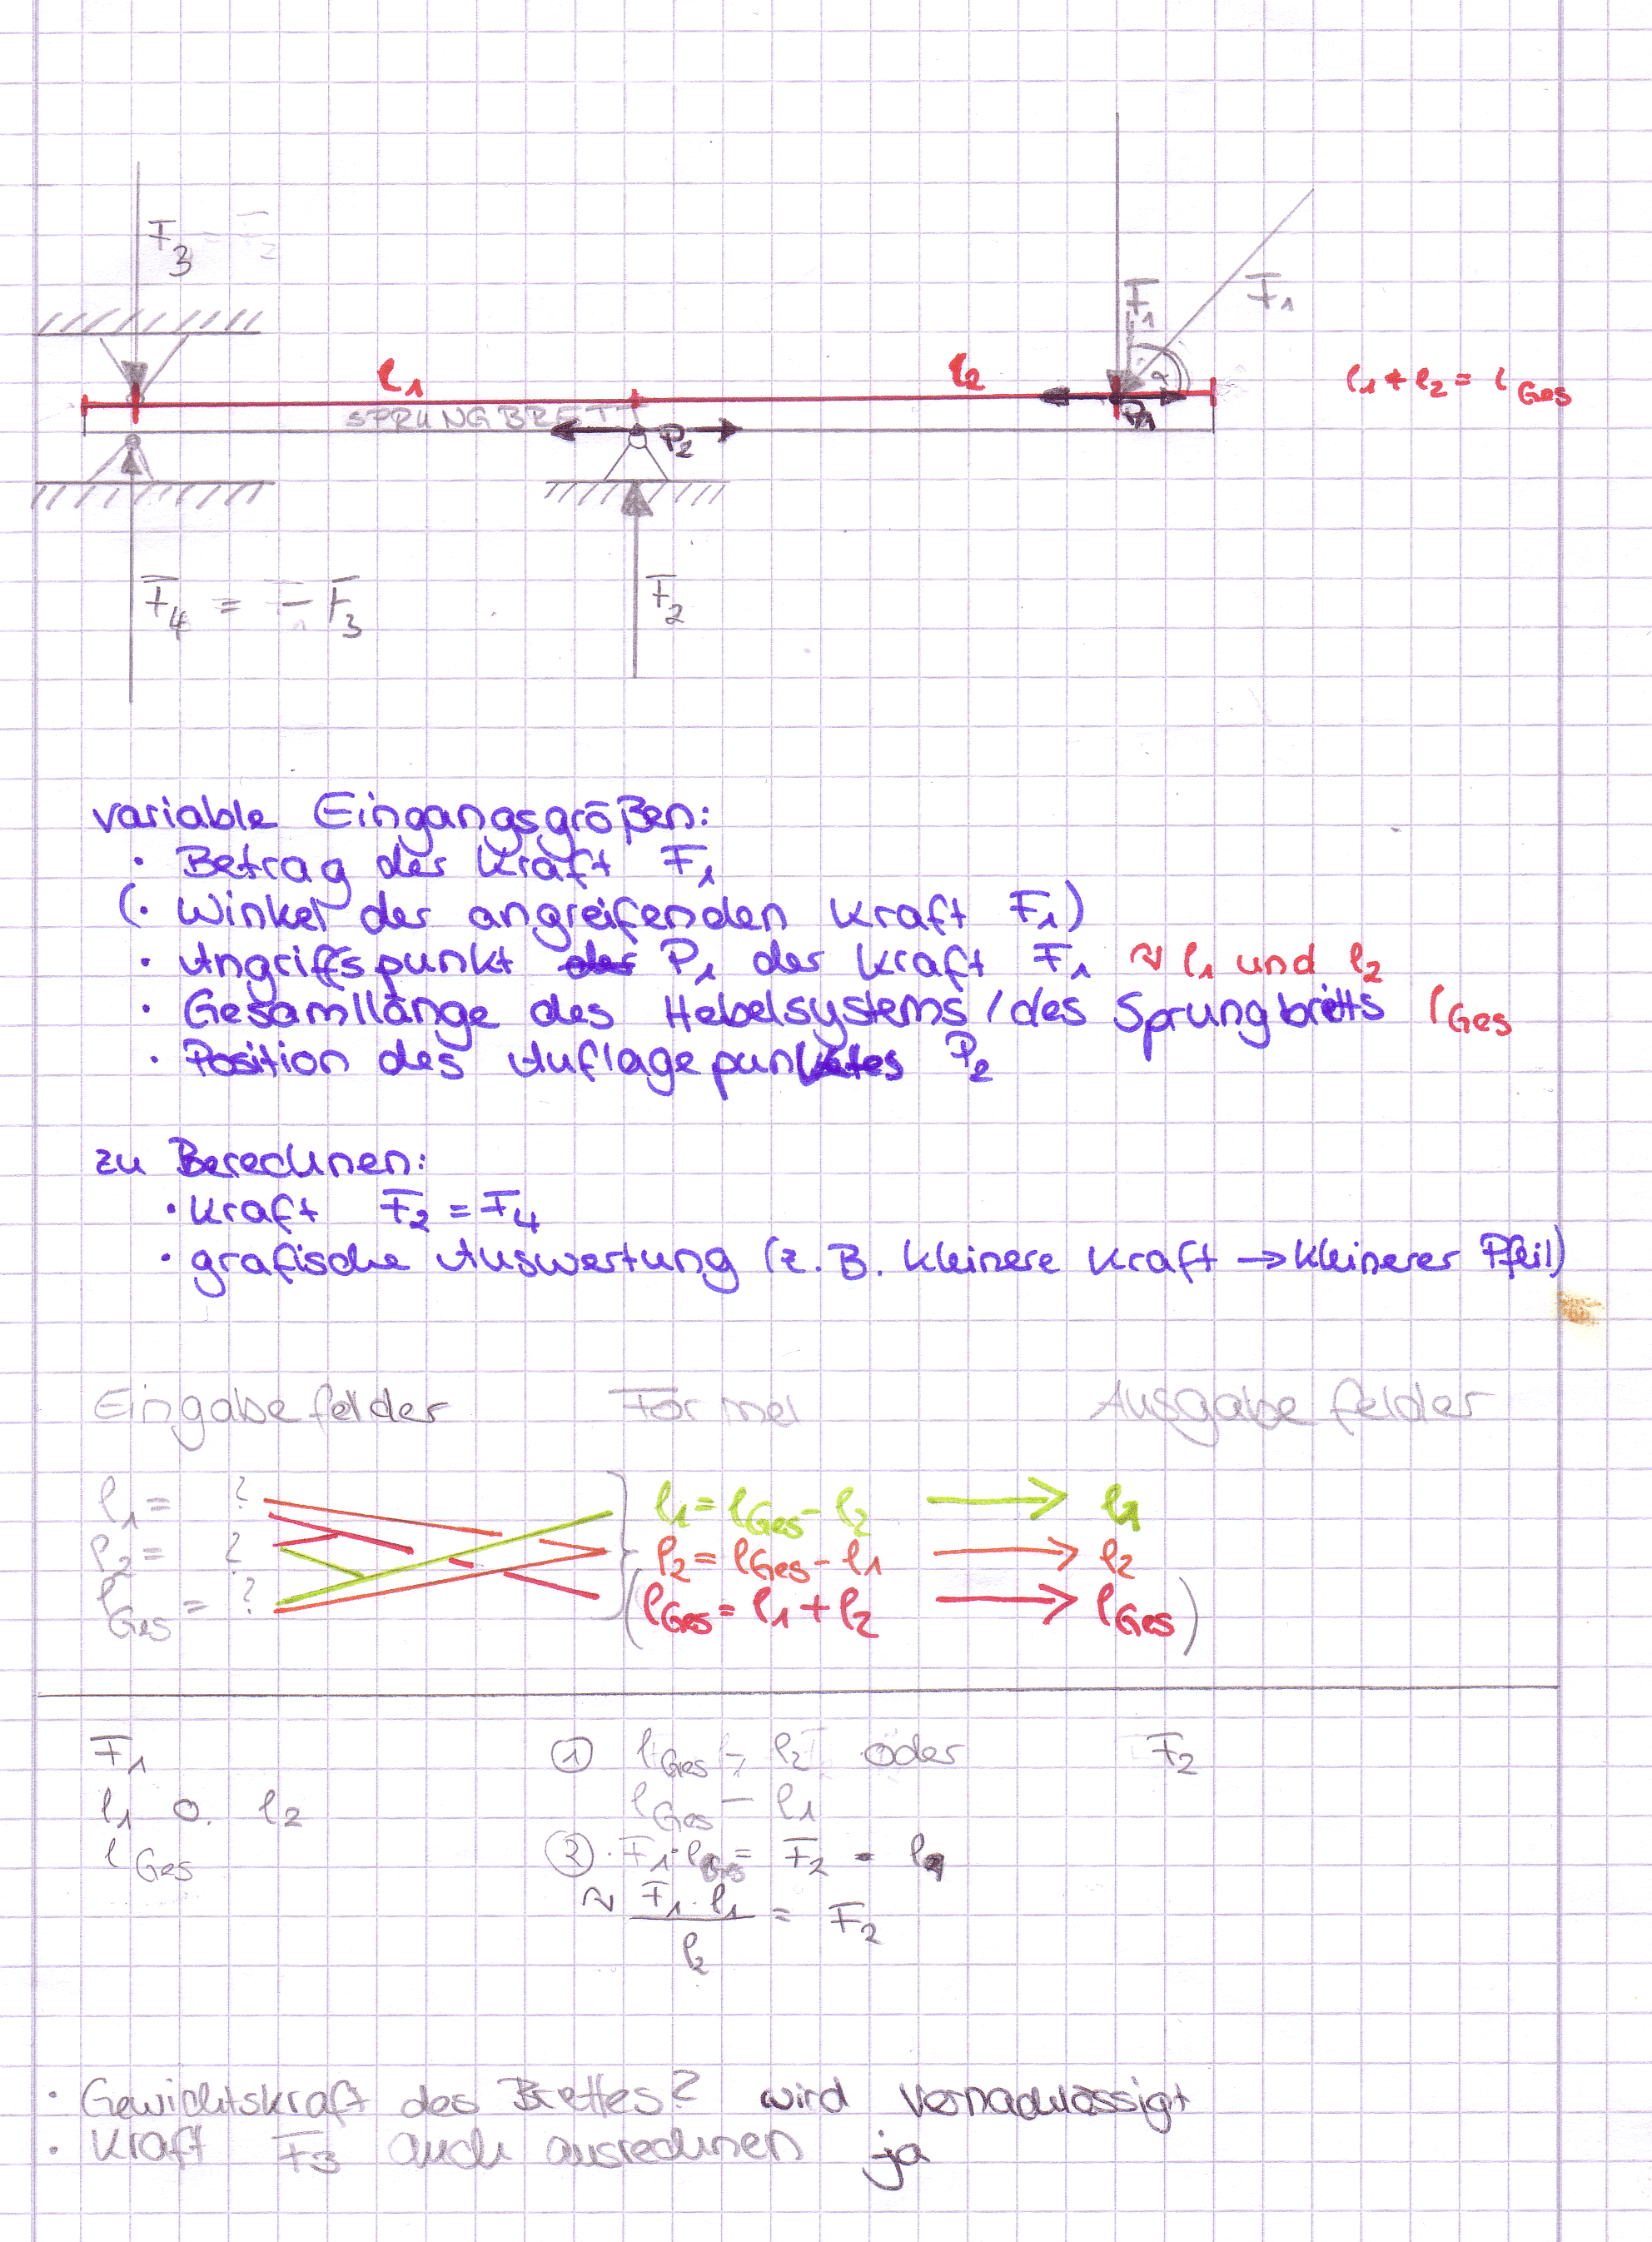 F3
F1
F1
α
l1
l2
l1 + l2 = lGes
SPRUNGBRETT
P1
P2
F4 = - F3
F2
variable Eingangsgrößen:
· Betrag der Kraft F1
(· Winkel der angreifenden Kraft F1)
· Angriffspunkt P1 der Kraft F1 ≈ l1 und l2
· Gesamtlänge des Hebelsystems / des Sprungbretts lGes
· Position des Auflagepunktes P2
zu Berechnen:
· Kraft F2 = F4
· grafische Auswertung (z.B. kleinere Kraft → kleinerer Pfeil)
Eingabefelder Formel Ausgabefelder
l1 = ? l1 = lGes - l2 → l1
l2 = ? l2 = lGes - l1 → l2
lGes = ? (lGes = l1 + l2 → lGes)
F1 ① lGes - l2 oder F2
l1 o. l2 lGes - l1
lGes ② F1 · = F2 ·
≈ F1 · l1 / l2 = F2
· Gewichtskraft des Brettes? wird vernachlässigt
· Kraft F3 auch ausrechnen ja